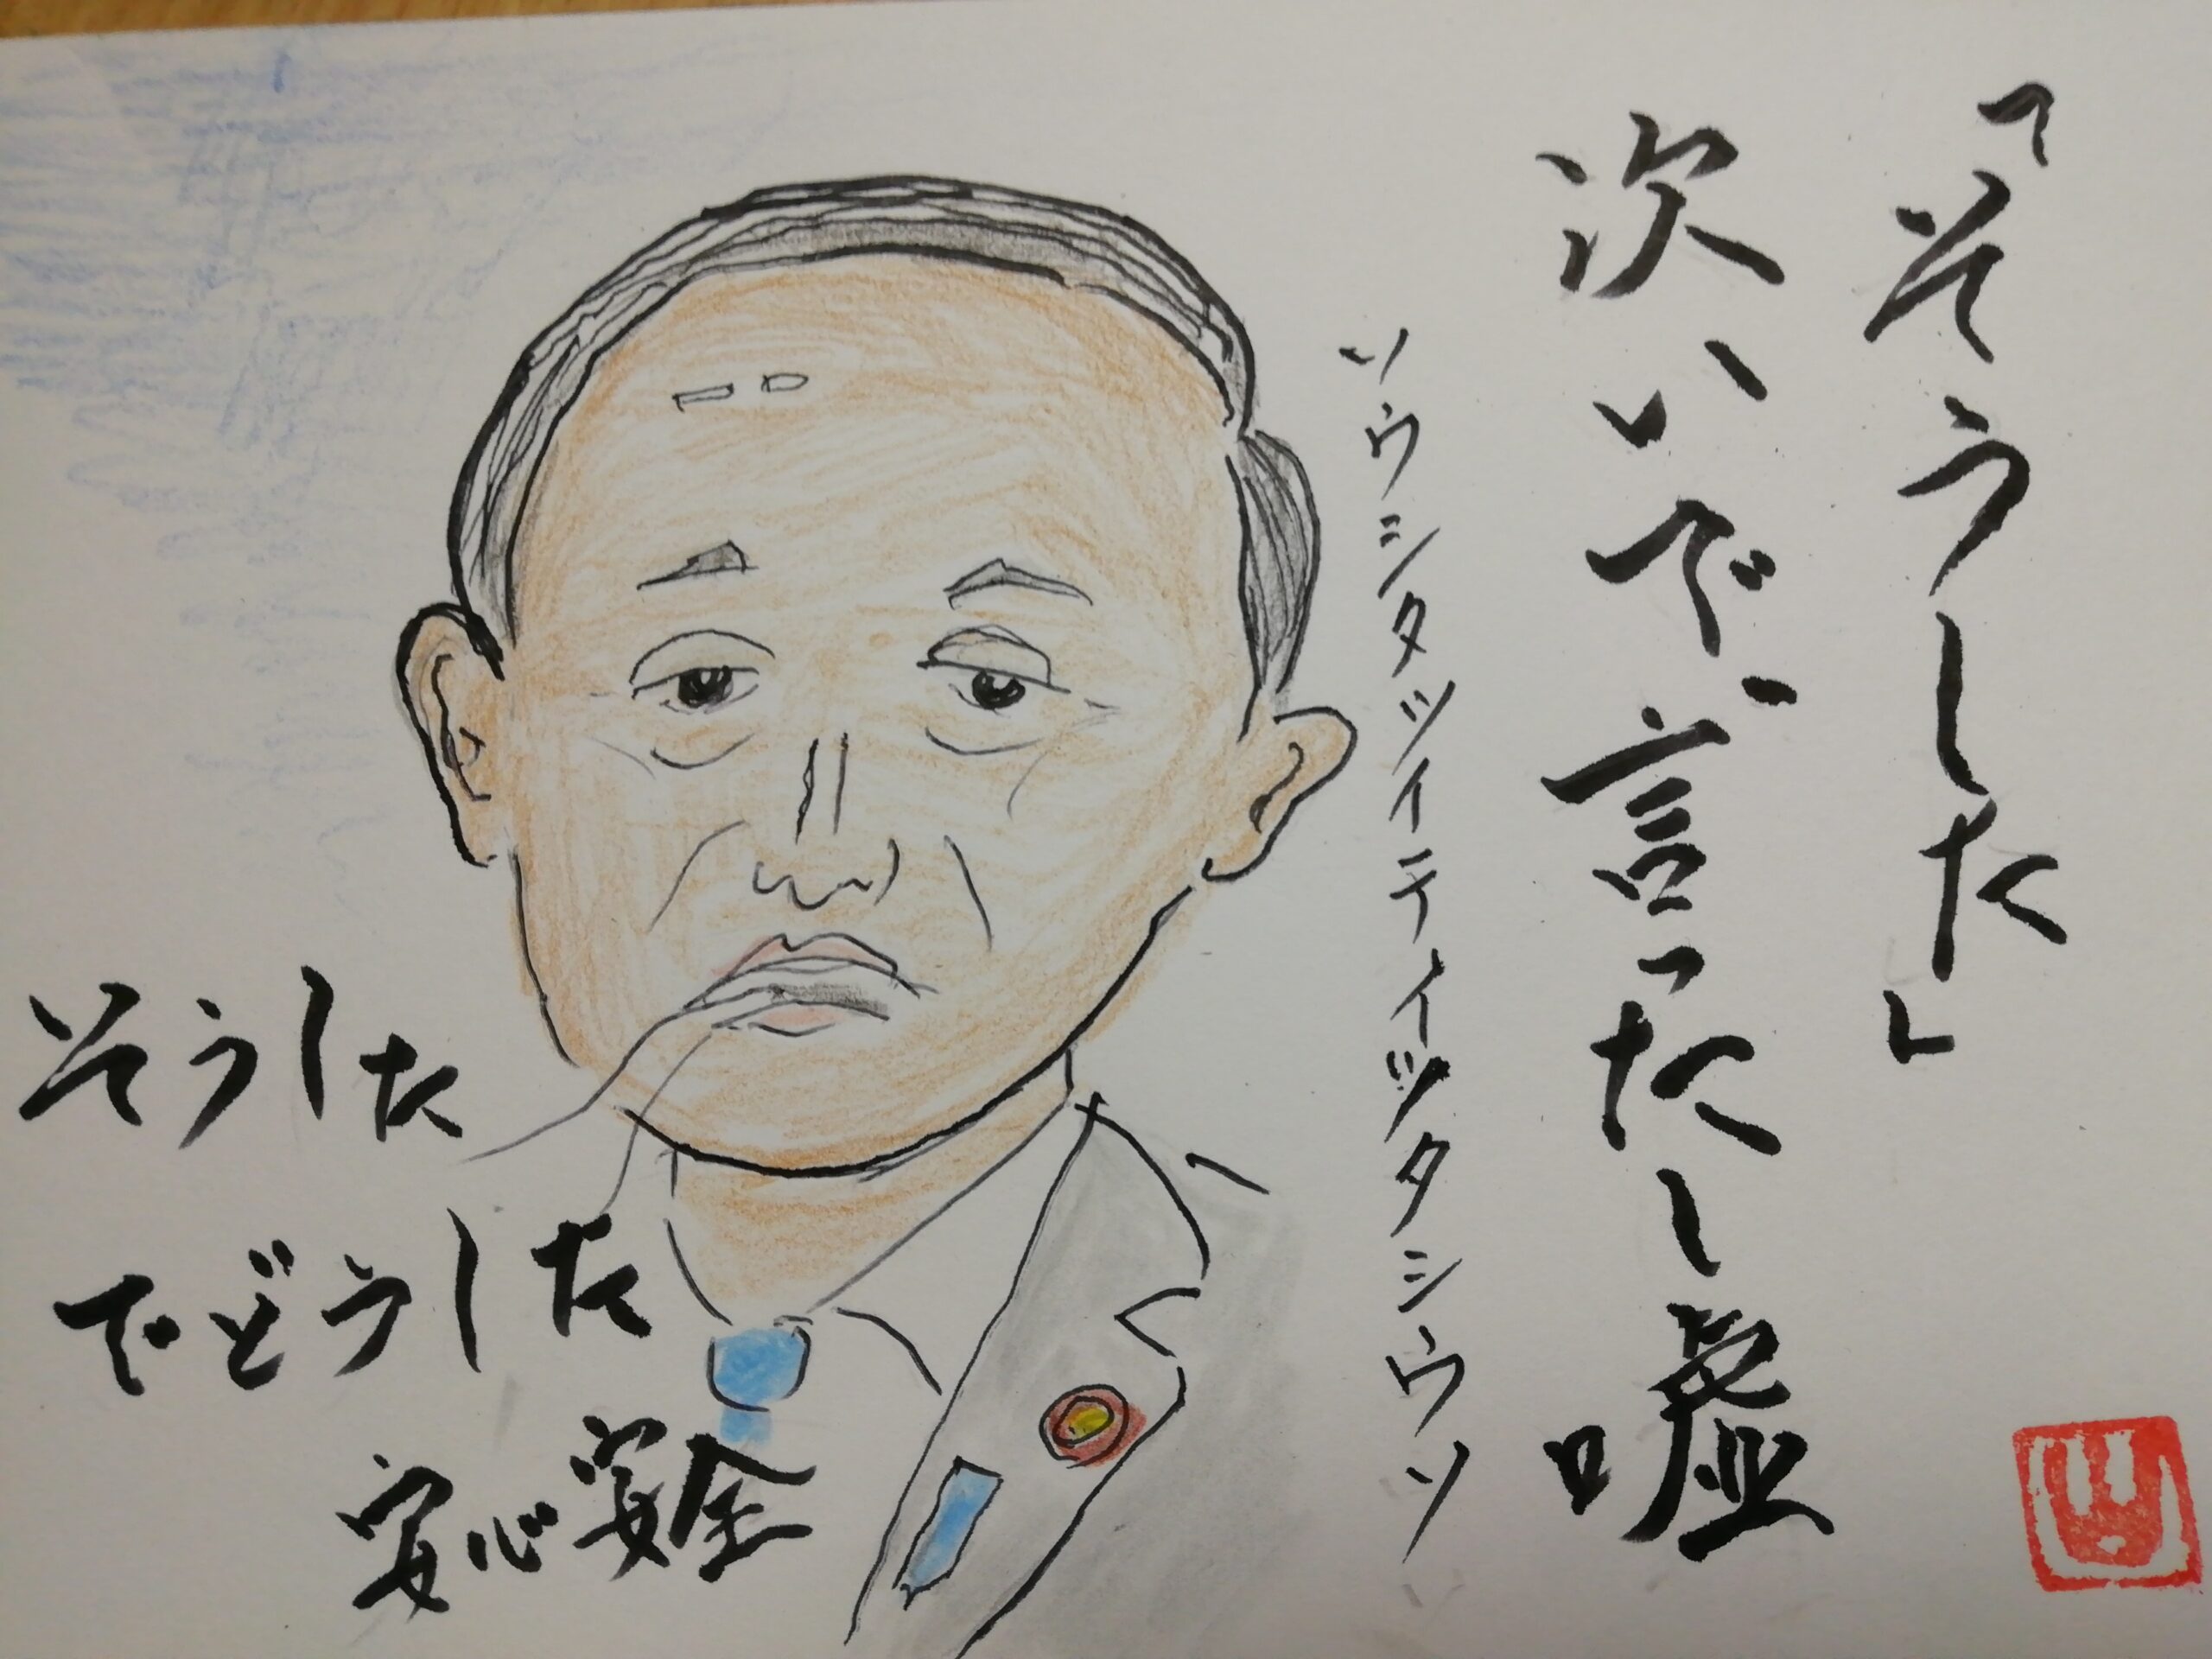 「そうした」
次いで、言ったし嘘
ソウシタツイテイツタシウソ
そうした
でどうした
安心安全